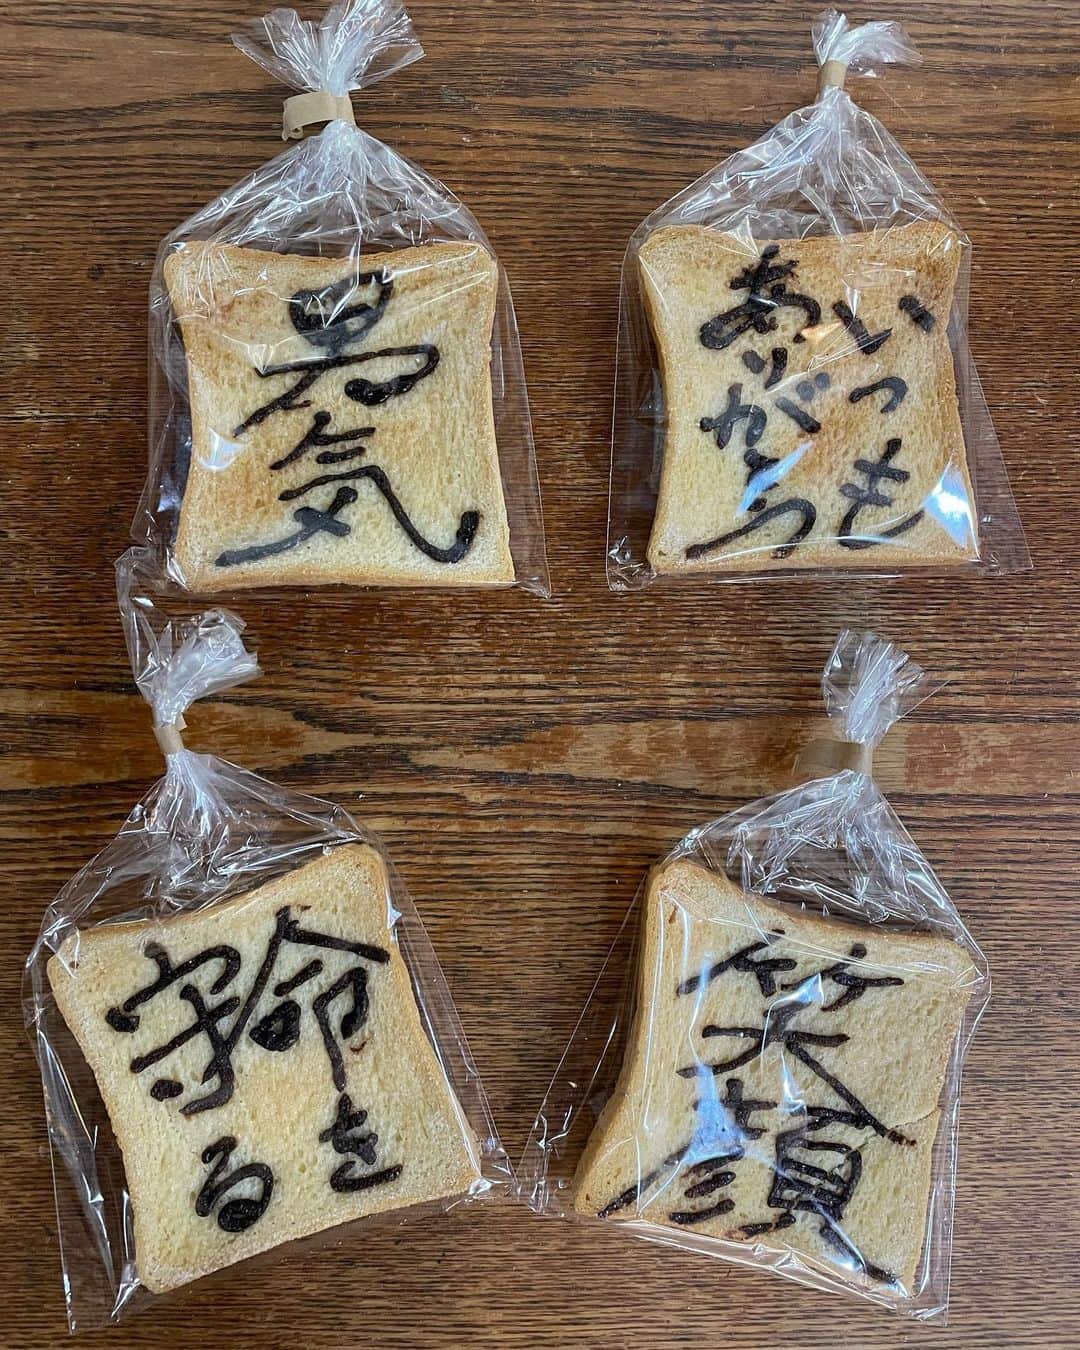 勇気
いつも
ありがとう
命を
守る
笑
顔